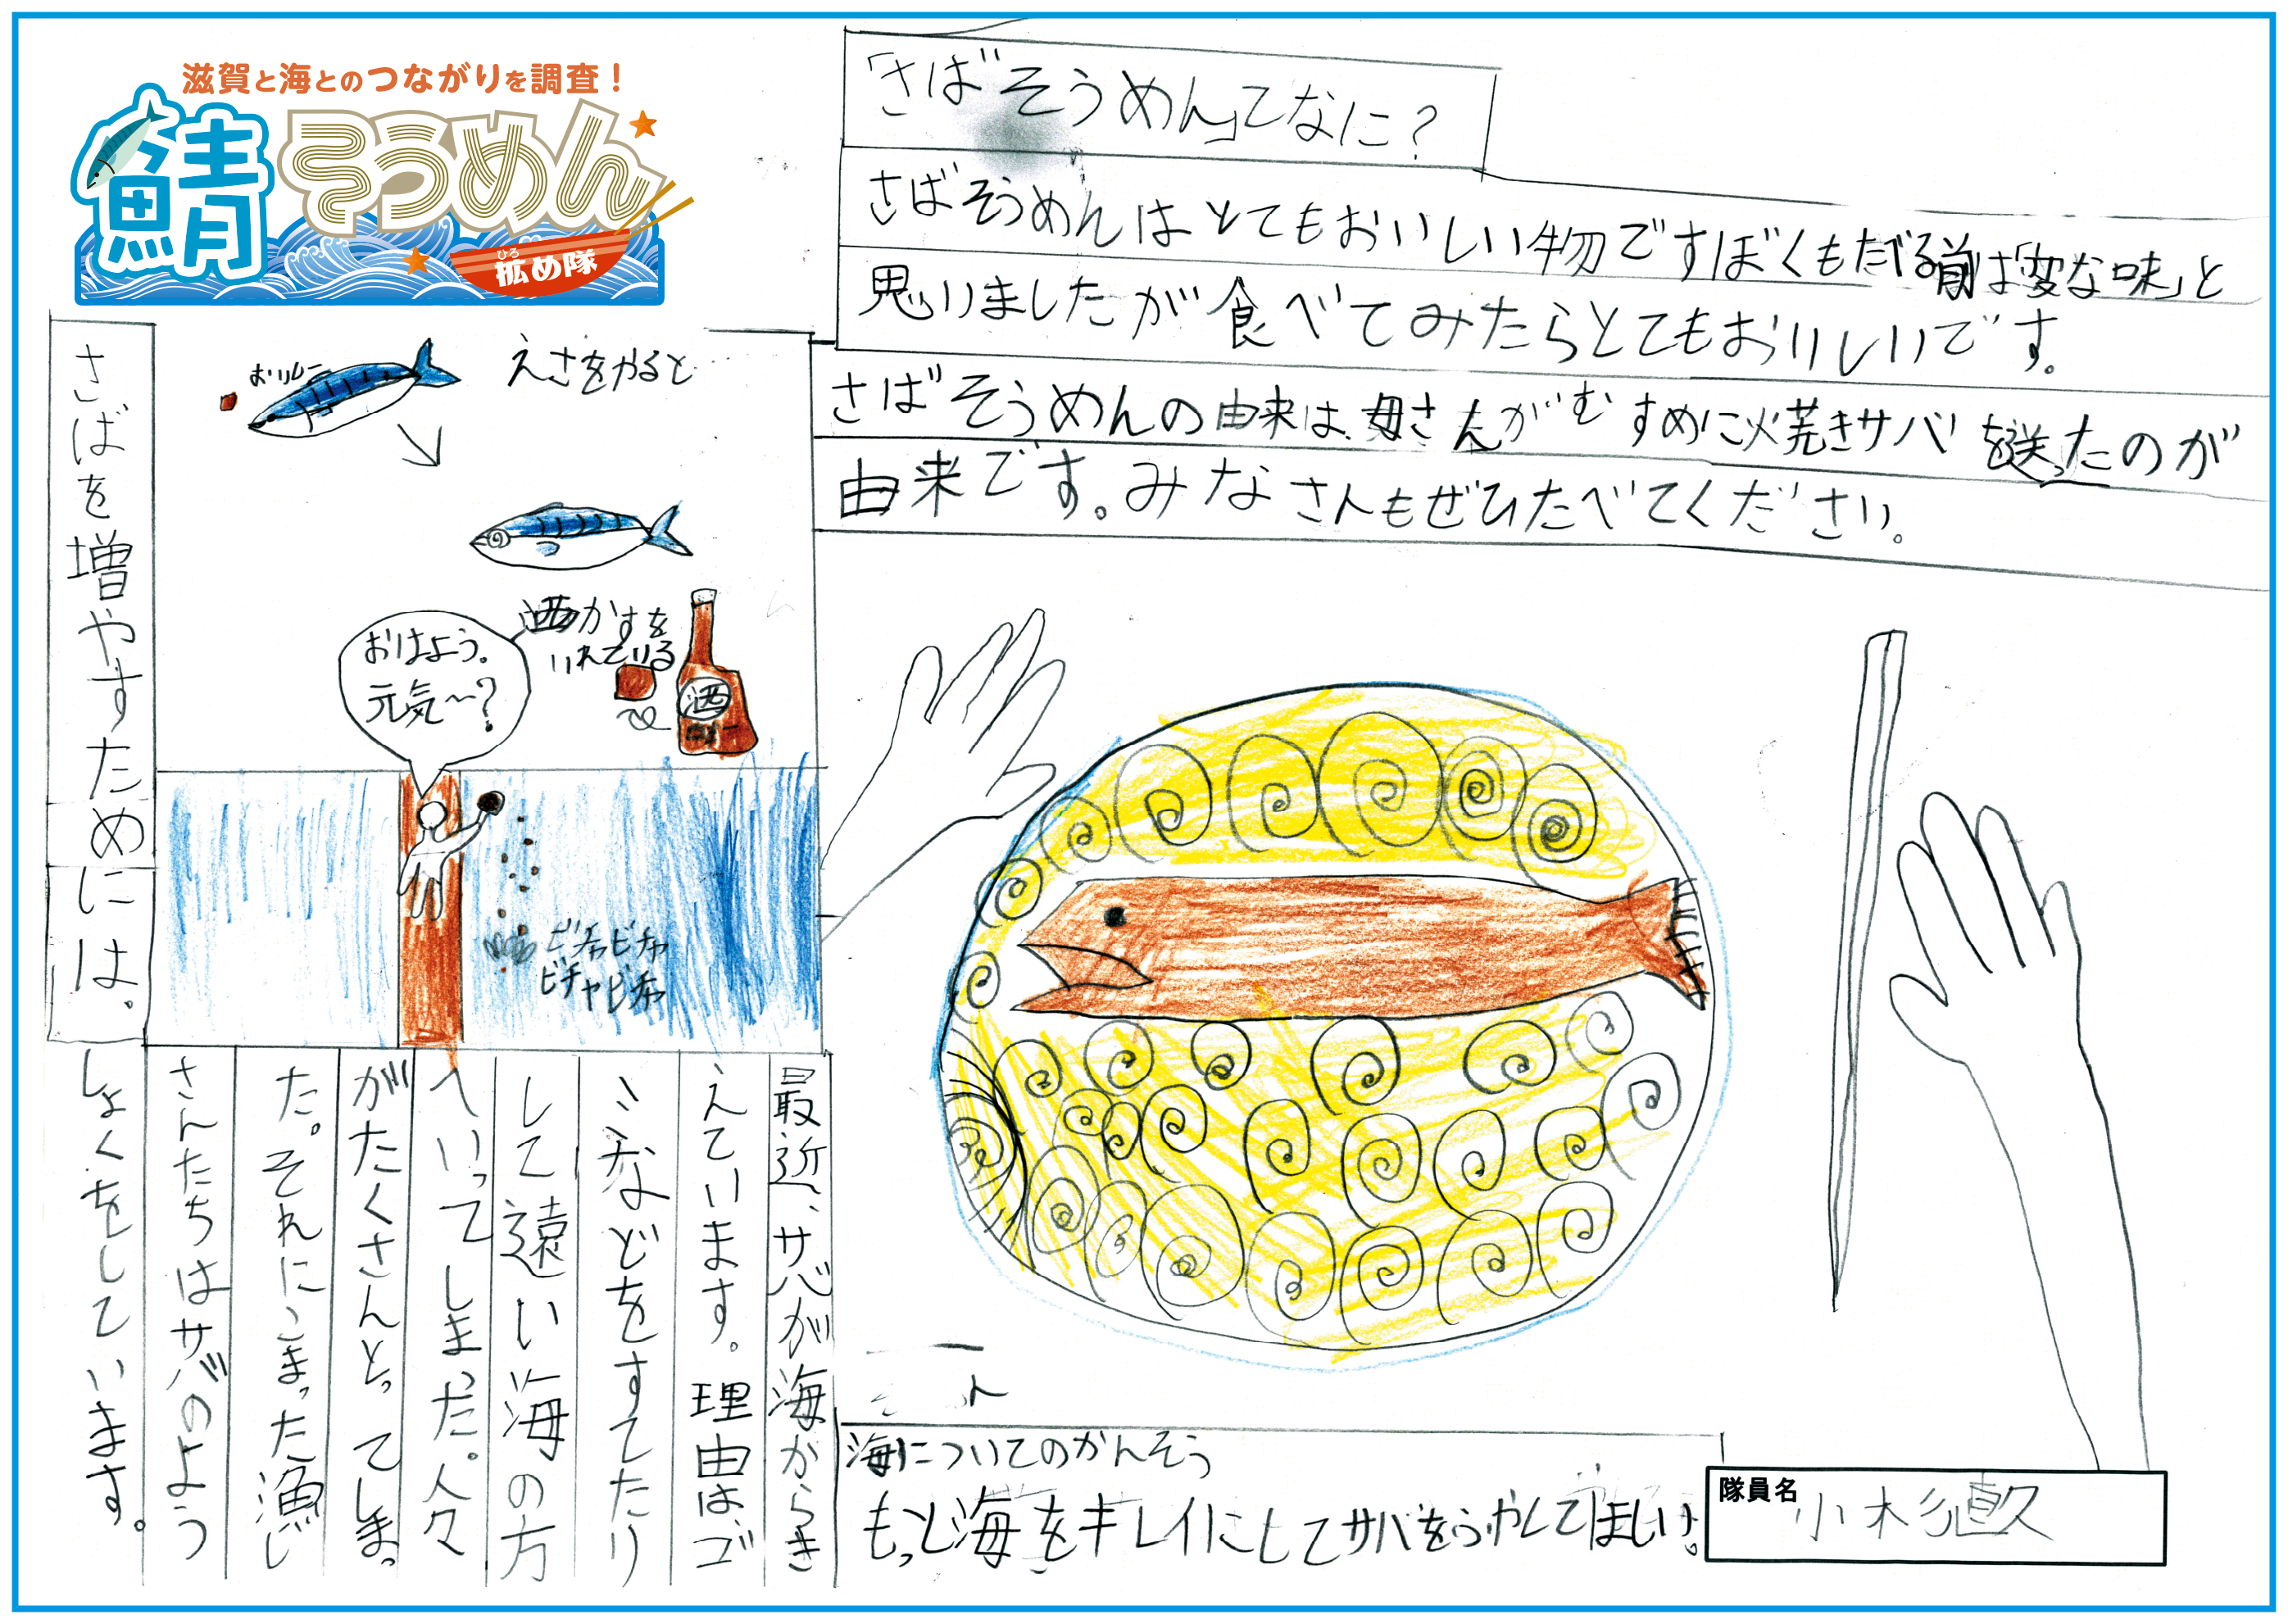 滋賀と海とのつながりを調査！
鯖そうめん
ひろ
拡め隊
「さばそうめん」てなに？
さばそうめんはとてもおいしい物ですぼくもたべる前は「変な味」と
思いましたが食べてみたらとてもおいしいです。
さばそうめんの由来は、母さんがむすめに焼きサバを送ったのが
由来です。みなさんもぜひたべてください。
さばを増やすためには。
おいしー
えさをやると
酒かすを
いれている
酒
おはよう。
元気〜？
ビチャビチャ
ビチャビチャ
最近、サバが海からき
えています。理由は、ゴ
ミなどをすてたり
して遠い海の方
へいってしまった。人々
がたくさんとってしまっ
た。それにこまった漁し
さんたちはサバのよう
しょくをしています。
海についてのかんそう
もっと海をキレイにしてサバをふやしてほしい。
隊員名
小杉直久